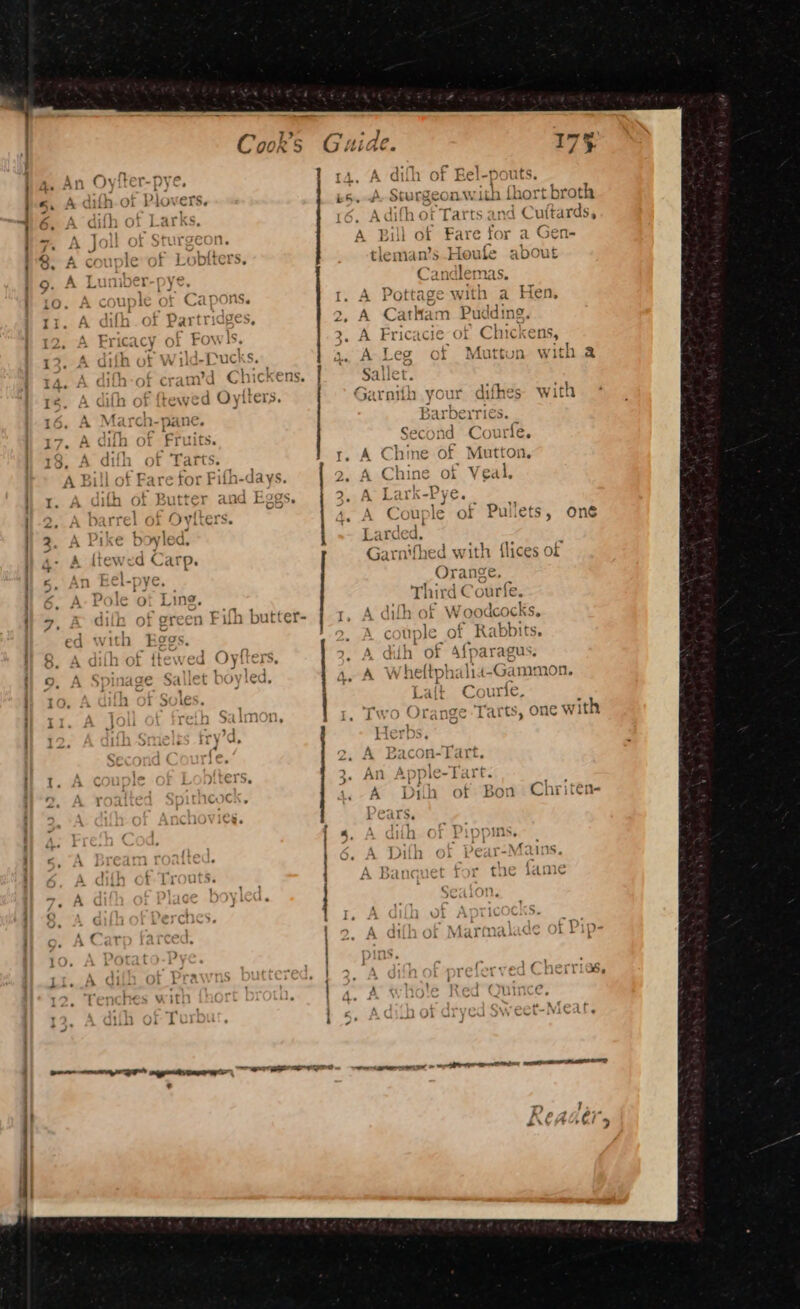 Cook's Guide. 175
4. An Oyſter-pye.
5. A diſh of Plovers.
6. A diſh of Larks.
7. A Joll of Sturgeon.
8. A couple of Lobſters.
9. A Lumber-pye.
10. A couple of Capons.
11. A diſh of Partridges,
12. A Fricacy of Fowls.
13. A diſh of Wild-Ducks.
14. A diſh of cram'd Chickens.
15. A diſh of ſtewed Oyſters.
16. A March-pane.
17. A diſh of Fruits.
18. A diſh of Tarts.
A Bill of Fare for Fiſh-days.
1. A diſh of Butter and Eggs.
2. A barrel of Oyſters.
3. A Pike boyled.
4. A ſtewed Carp.
5. An Eel-pye.
6. A Pole of Ling.
7. A diſh of green Fiſh butter-
ed with Eggs.
8. A diſh of ſtewed Oyſters.
9. A Spinage Sallet boyled.
10. A diſh of Soles.
11. A Joll of freſh Salmon,
12. A diſh Smelts fry'd.
Second Courſe.
1. A couple of Lobſters.
2. A roaſted Spithcock.
3. A diſh of Anchovies.
4. Freſh Cod.
5. A Bream roaſted.
6. A diſh of Trouts.
7. A diſh of Place boyled.
8. A diſh of Perches.
9. A Carp farced.
10. A Potato-Pye.
11. A diſh of Prawns buttered.
12. Tenches with ſhort broth.
13. A diſh of Turbut.
14. A diſh of Eel-pouts.
15. A Sturgeon with ſhort broth
16. A diſh of Tarts and Cuſtards,
A Bill of Fare for a Gen-
tleman's Houſe about
Candlemas.
1. A Pottage with a Hen,
2. A Catham Pudding.
3. A Fricacie of Chickens,
4. A Leg of Mutton with a
Sallet.
Garniſh your diſhes with
Barberries.
Second Courſe.
1. A Chine of Mutton.
2. A Chine of Veal.
3. A Lark-Pye.
4. A Couple of Pullets, one
Larded.
Garniſhed with ſlices of
Orange.
Third Courſe.
1. A diſh of Woodcocks.
2. A couple of Rabbits.
3. A diſh of Aſparagus.
4. A Wheſtphalia-Gammon.
Laſt Courſe.
1. Two Orange-Tarts, one with
Herbs.
2. A Bacon-Tart.
3. An Apple-Tart.
4. A Diſh of Bon Chriten-
Pears.
5. A diſh of Pippins.
6. A Diſh of Pear-Mains.
A Banquet for the ſame
Seaſon.
1. A diſh of Apricocks.
2. A diſh of Marmalade of Pip-
pins.
3. A diſh of preſerved Cherries,
4. A whole Red Quince.
5. A diſh of dryed Sweet-Meat.
Reader,